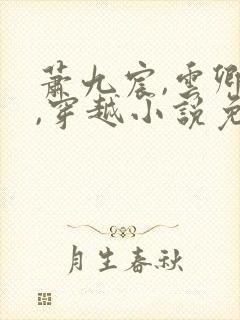 蕭九宸,雲卿
,穿越小說免
月生春秋